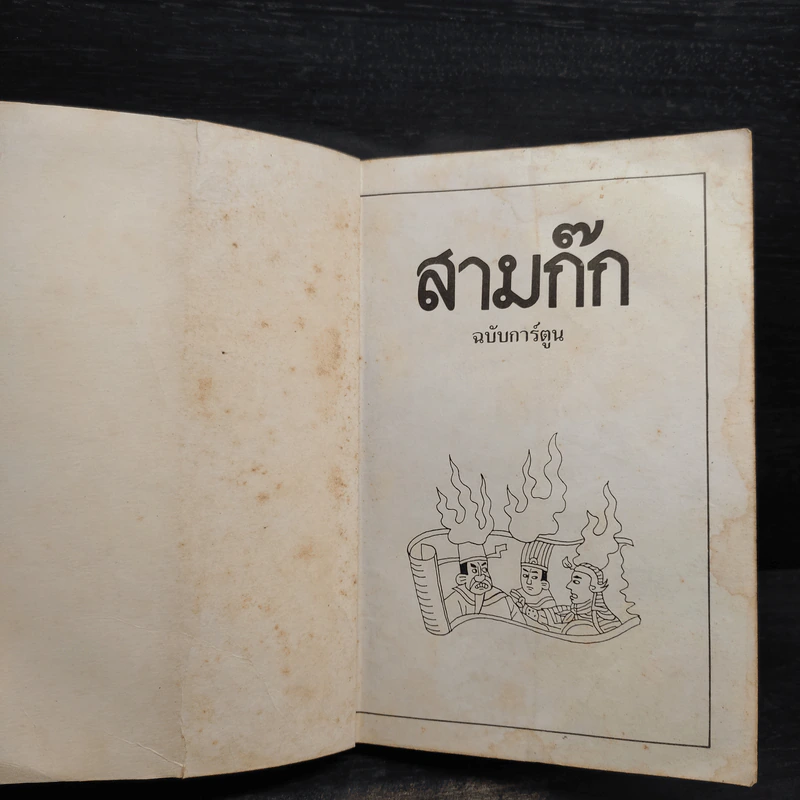 สามก๊ก
ฉบับการ์ตูน